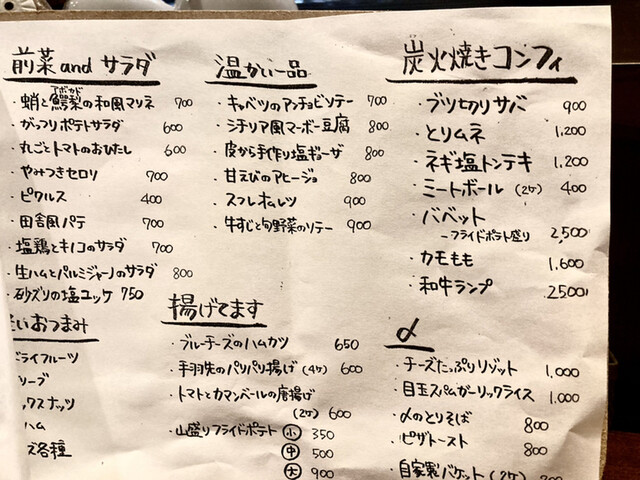 前菜 and サラダ
・蛸と鰐梨の和風マリネ 700
アボカド
・がっつりポテトサラダ 600
・丸ごとトマトのおひたし 600
・やみつきセロリ 700
・ピクルス 400
・田舎風パテ 700
・塩鶏とキノコのサラダ 700
・生ハムとパルミジャーノのサラダ 800
・砂ズリの塩ユッケ 750
いおつまみ
ドライフルーツ
リーブ
ックスナッツ
ハム
ズ各種
温かい一品
・キャベツのアンチョビソテー 700
・シチリア風マーボー豆腐 800
・皮から手作り塩ギョーザ 800
・甘えびのアヒージョ 800
・スフレオムレツ 900
・牛すじと旬野菜のソテー 900
揚げてます
・ブルーチーズのハムカツ 650
・手羽先のパリパリ揚げ (4ヶ) 600
・トマトとカマンベールの唐揚げ
(2ヶ) 600
・山盛りフライドポテト 小 350
中 500
大 900
炭火焼きコンフィ
・ブツ切りサバ 900
・とりムネ 1,200
・ネギ塩トンテキ 1,200
・ミートボール (2ヶ) 400
・バベット
ーフライドポテト盛り 2,500
・カモもも 1,600
・和牛ランプ 2500
〆
・チーズたっぷりリゾット 1,000
・目玉スパムガーリックライス 1,000
・〆のとりそば 800
・ピザトースト 800
・自家製バケット (2ヶ) 200